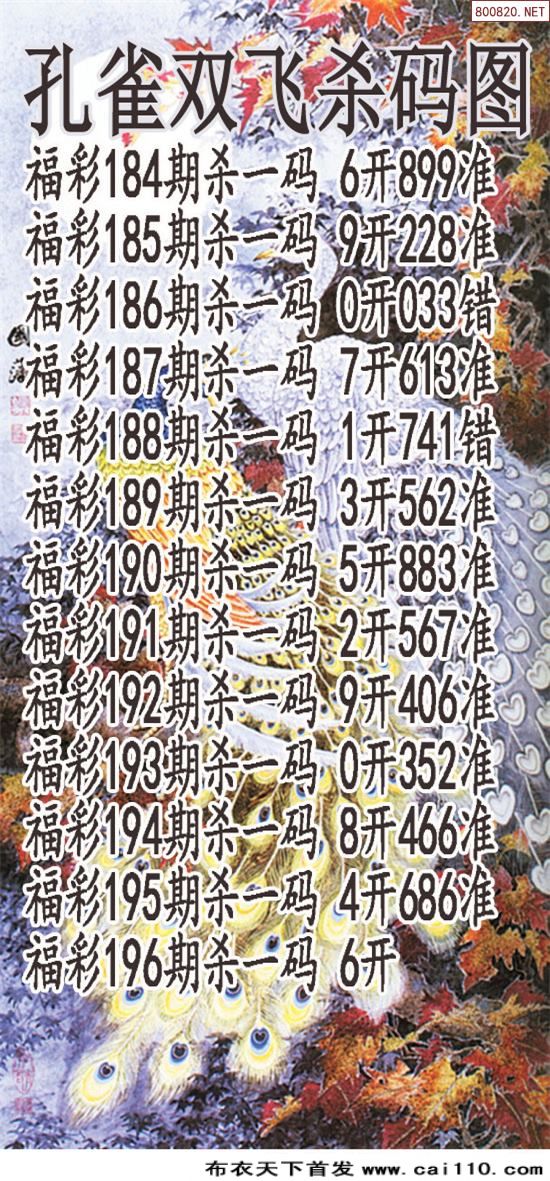 800820.NET
孔雀双飞杀码图
福彩184期杀一码 6开899准
福彩185期杀一码 9开228准
福彩186期杀一码 0开033错
福彩187期杀一码 7开613准
福彩188期杀一码 1开741错
福彩189期杀一码 3开562准
福彩190期杀一码 5开883准
福彩191期杀一码 2开567准
福彩192期杀一码 9开406准
福彩193期杀一码 0开352准
福彩194期杀一码 8开466准
福彩195期杀一码 4开686准
福彩196期杀一码 6开
布衣天下首发 www.cai110.com